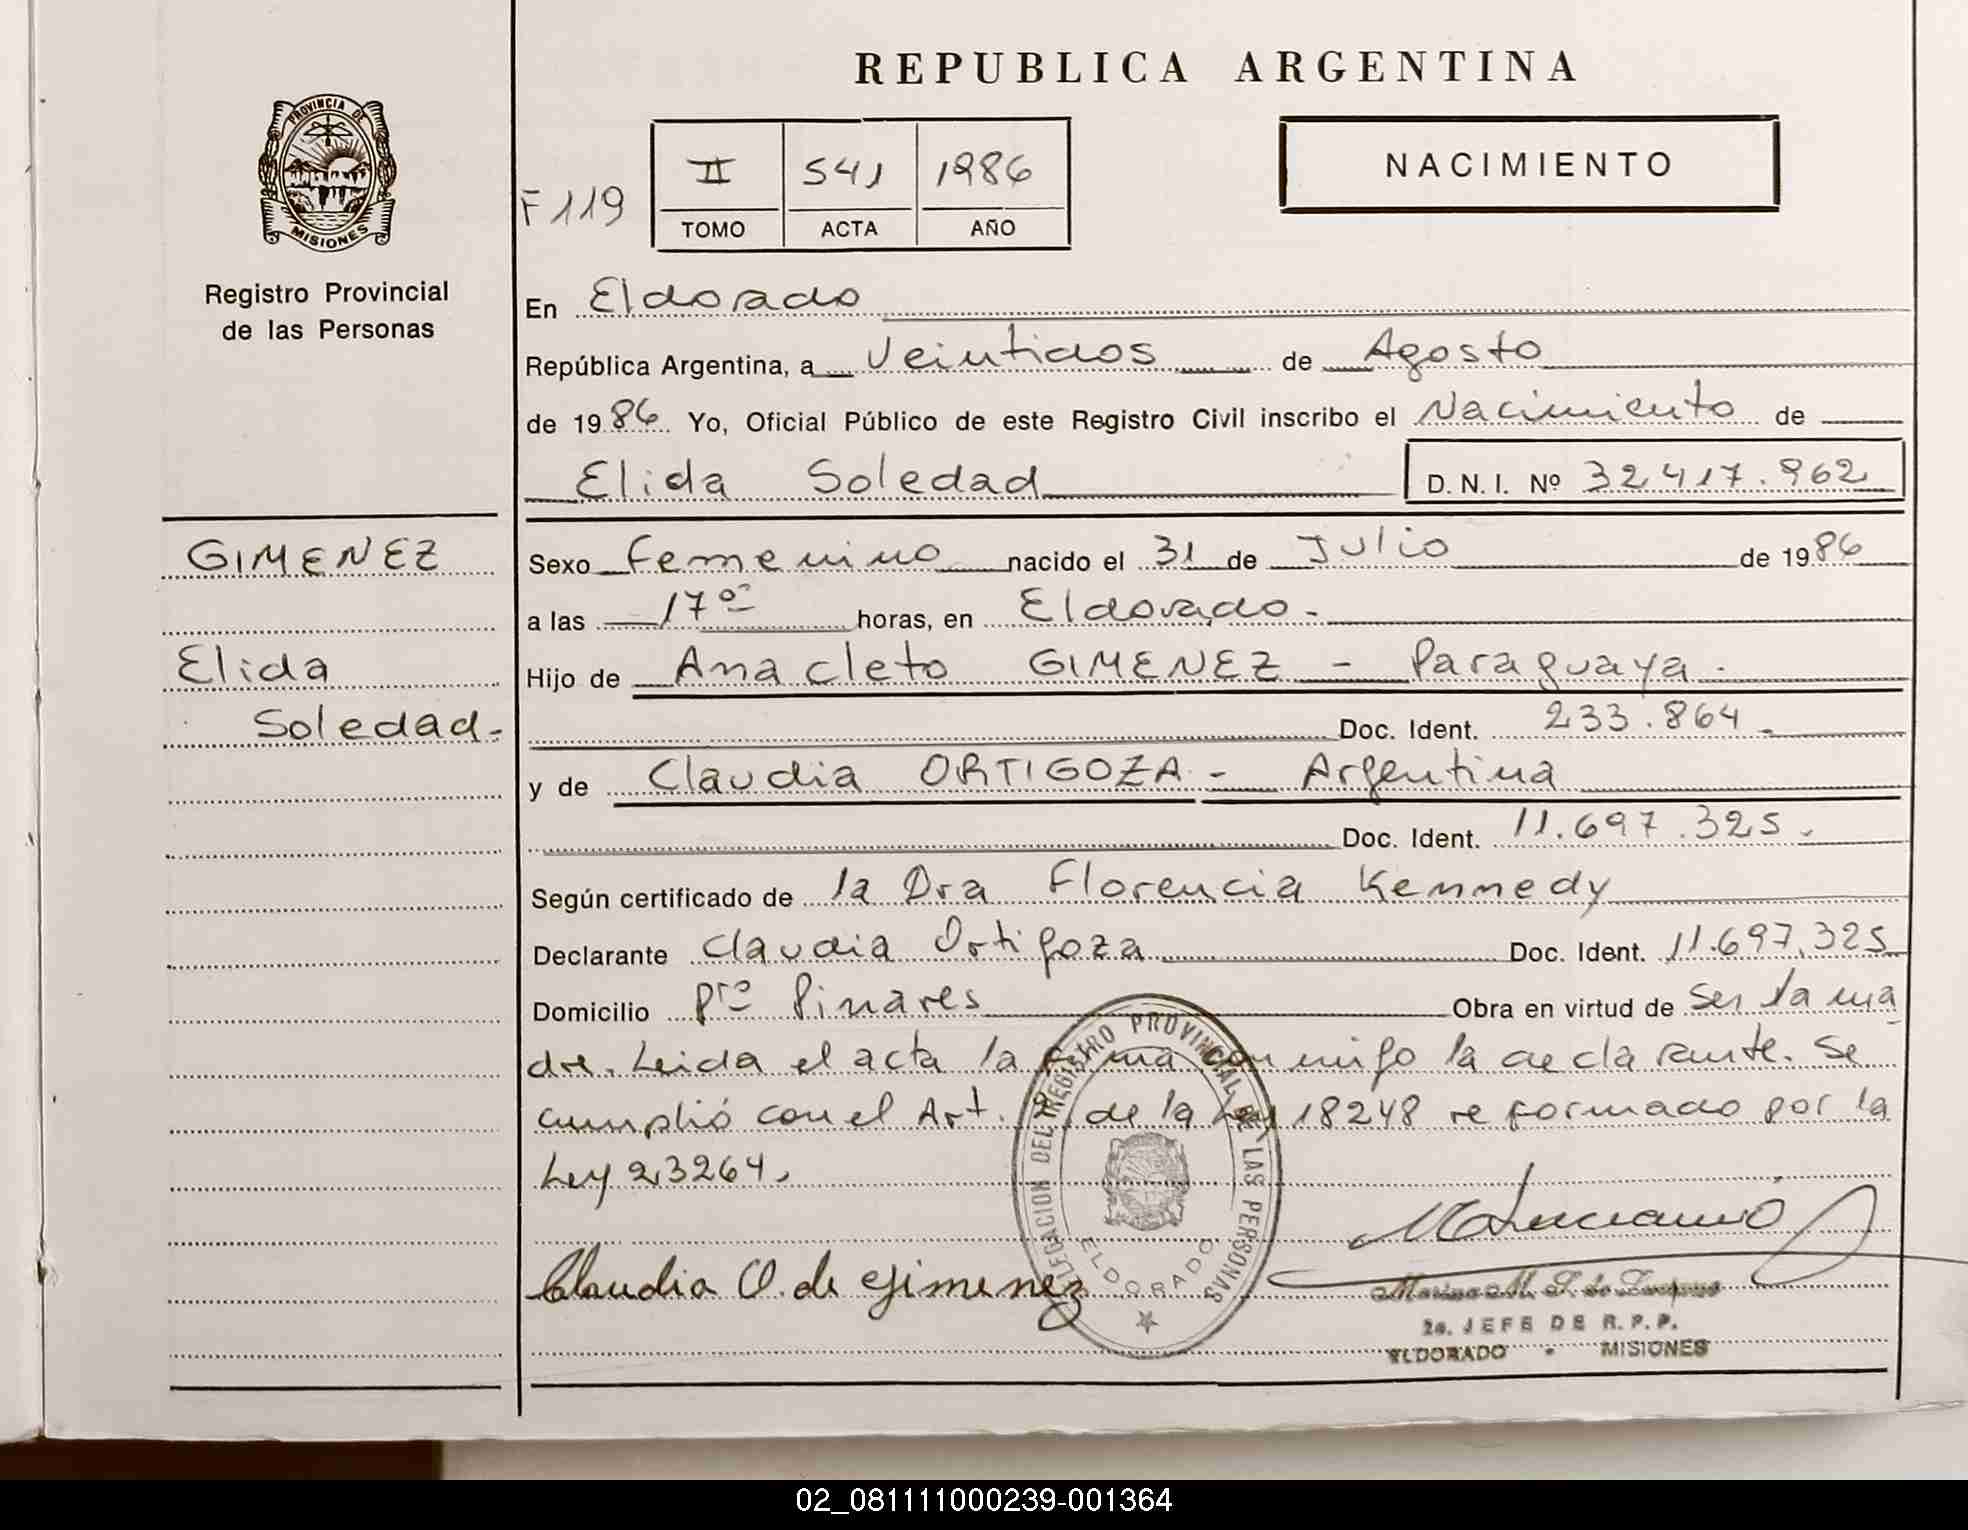 REPUBLICA ARGENTINA
PROVINCIA DE
MISIONES
Registro Provincial
de las Personas
F 119
II 541 1986
TOMO ACTA AÑO
NACIMIENTO
En Eldorado
República Argentina, a Veintidos de Agosto
de 1986 Yo, Oficial Público de este Registro Civil inscribo el Nacimiento de
Elida Soledad D. N. I. Nº 32417.962
GIMENEZ
Elida
Soledad.-
Sexo Femenino nacido el 31 de Julio de 1986
a las 17 horas, en Eldorado.-
Hijo de Anacleto GIMENEZ - Paraguaya.
Doc. Ident. 233.864.
y de Claudia ORTIGOZA - Argentina
Doc. Ident. 11.697.325.
Según certificado de la Dra Florencia Kennedy
Declarante Claudia Ortigoza Doc. Ident. 11.697.325
Domicilio Pto Pinares Obra en virtud de ser la ma
dre. Leida el acta la firma conmigo la declarante. Se
cumplió con el Art. de la Ley 18248 reformado por la
Ley 23264.
DELEGACION DEL REGISTRO PROVINCIAL DE LAS PERSONAS
ELDORADO
Claudia O. de Gimenez
2a. JEFE DE R. P. P.
ELDORADO - MISIONES
02_081111000239-001364